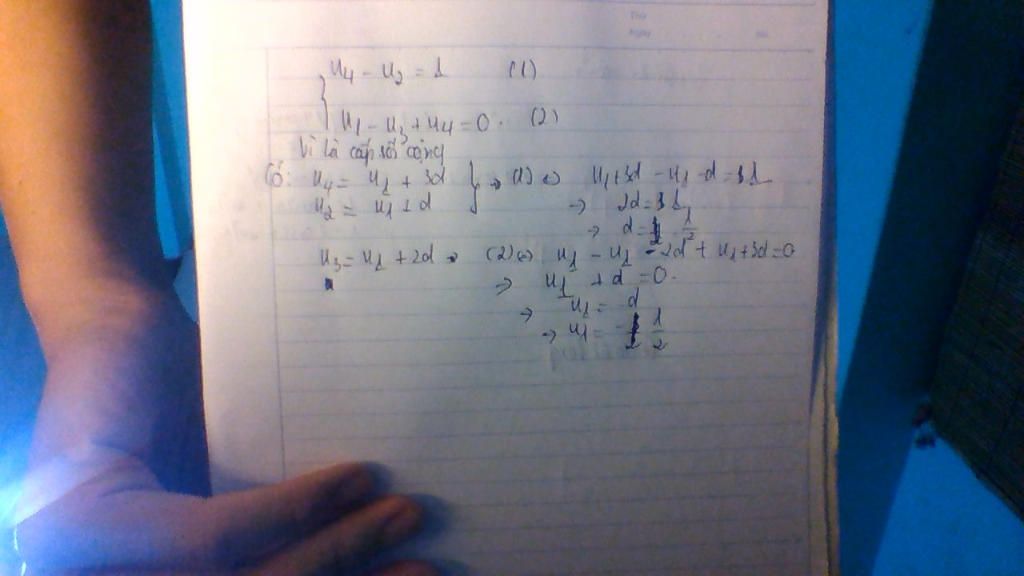 u4 - u2 = 1 (1)
u1 - u3 + u4 = 0. (2)
Vì là cấp số cộng
Có: u4 = u1 + 3d } → (1) ⇔ u1 + 3d - u1 - d = 1
u2 = u1 + d → 2d = 1
→ d = 1/2
u3 = u1 + 2d → (2) ⇔ u1 - u1 - 2d + u1 + 3d = 0
→ u1 + d = 0.
→ u1 = -d
→ u1 = -1/2